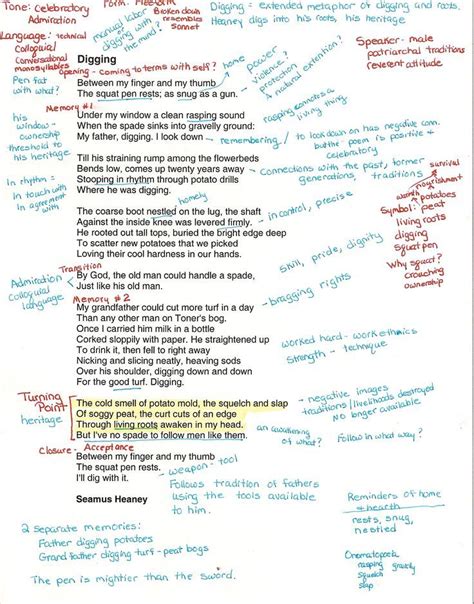 Tone: Celebratory
Admiration
Form: Freeform
Broken down
resembles
sonnet
Digging = extended metaphor of digging and roots.
Heaney digs into his roots, his heritage
manual labor
or
digging with
the mind?
Language: technical
Colloquial
Conversational
monosyllables
Speaker - male
patriarchal traditions
reverent attitude
opening - coming to terms with self?
home
power
violence?
protection
A natural extension?
Pen fat
with what?
Digging
Between my finger and my thumb
The squat pen rests; as snug as a gun.
Memory #1
Under my window a clean rasping sound
When the spade sinks into gravelly ground:
My father, digging. I look down
rasping connotes a
living thing
his
window -
ownership
threshold to
his heritage
remembering
to look down on has negative conn.
but the poem is positive +
celebratory
Till his straining rump among the flowerbeds
Bends low, comes up twenty years away
Stooping in rhythm through potato drills
Where he was digging.
connections with the past, former
generations, traditions
In rhythm =
in touch with
in agreement
with
survival
nourishment
warmth
potatoes
Symbol: peat
living roots
digging
squat pen
Why squat?
crouching
ownership
homely
The coarse boot nestled on the lug, the shaft
Against the inside knee was levered firmly.
He rooted out tall tops, buried the bright edge deep
To scatter new potatoes that we picked
Loving their cool hardness in our hands.
in control, precise
skill, pride, dignity
Transition
Admiration
Colloquial
language
By God, the old man could handle a spade,
Just like his old man.
bragging rights
Memory #2
My grandfather could cut more turf in a day
Than any other man on Toner's bog.
Once I carried him milk in a bottle
Corked sloppily with paper. He straightened up
To drink it, then fell to right away
Nicking and slicing neatly, heaving sods
Over his shoulder, digging down and down
For the good turf. Digging.
worked hard - work ethics
strength - technique
Turning
Point
heritage
The cold smell of potato mold, the squelch and slap
Of soggy peat, the curt cuts of an edge
Through living roots awaken in my head.
But I've no spade to follow men like them.
negative images
traditions/livelihoods destroyed
No longer available
an awakening
of what?
Follow in what way?
Closure - Acceptance
Between my finger and my thumb
The squat pen rests.
I'll dig with it.
weapon - tool
Follows tradition of fathers
using the tools available
to him.
Seamus Heaney
Reminders of home
+ hearth
nests, snug,
nestled
2 separate memories:
Father digging potatoes
Grandfather digging turf - peat bogs
Onomatopoeia
rasping gravelly
squelch
slap
The pen is mightier than the sword.